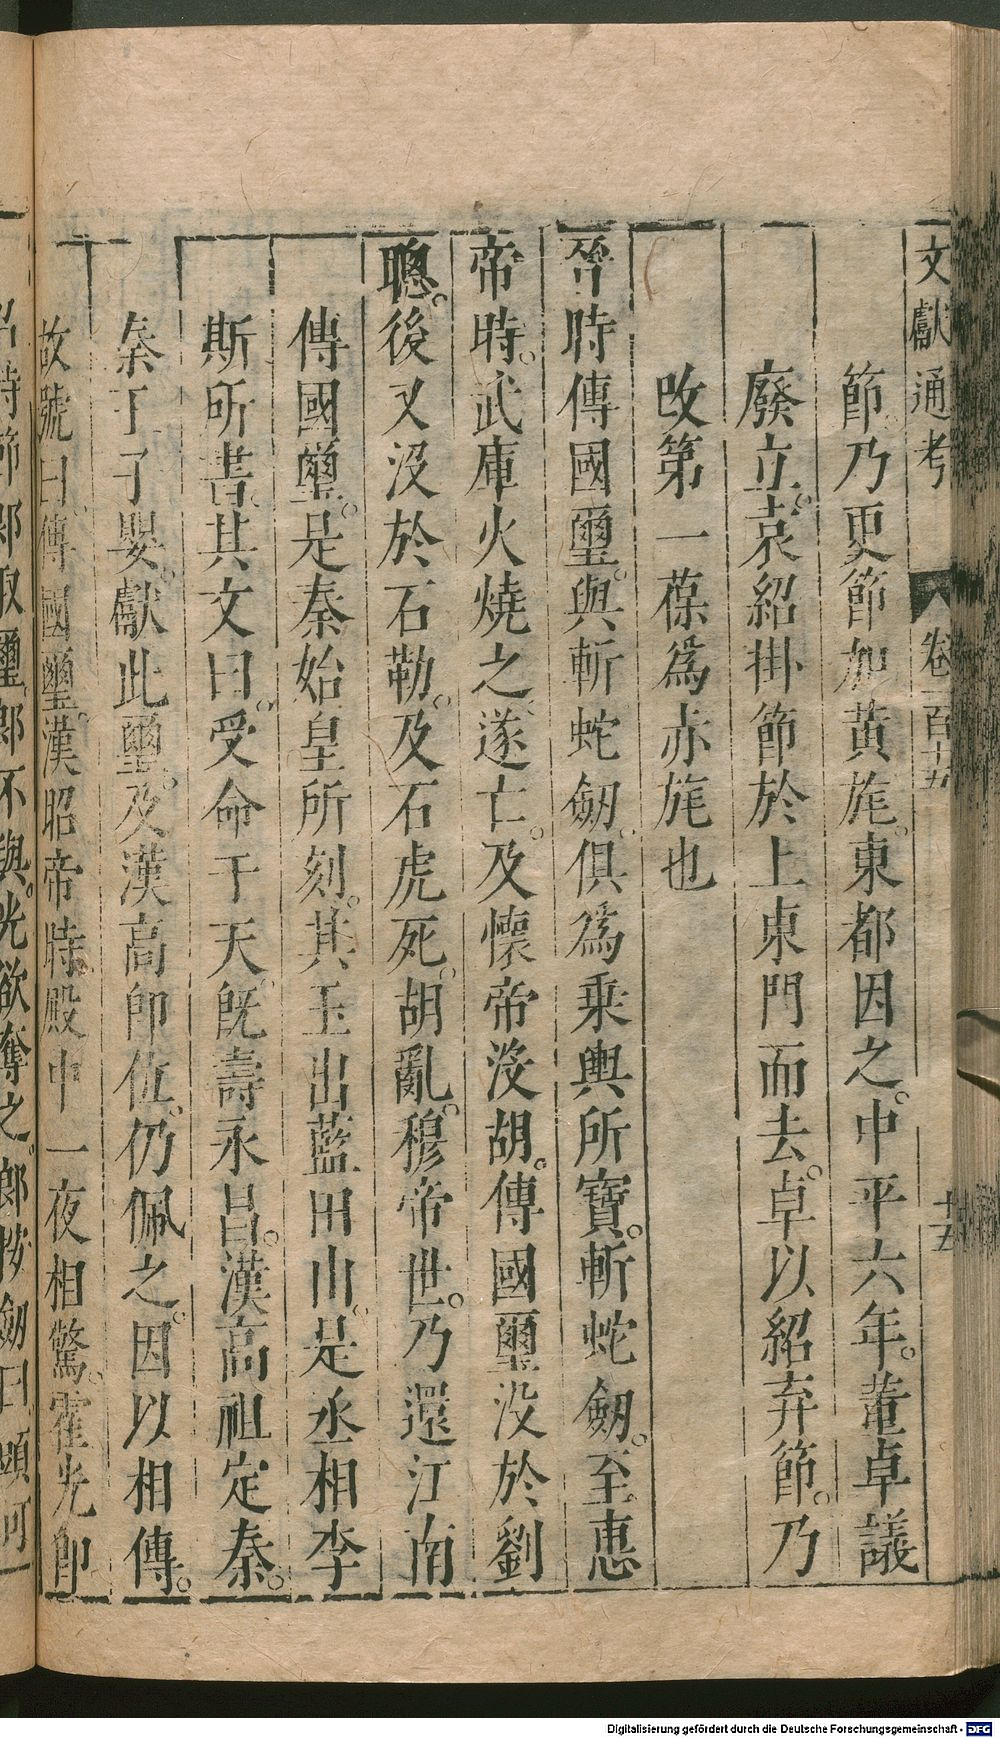 文獻通考 卷一百十五 十五
節乃更節加黃旄東都因之中平六年董卓議
廢立袁紹掛節於上東門而去卓以紹弃節乃
改第一葆爲赤旄也
晉時傳國璽與斬蛇劒俱爲乗輿所寶斬蛇劒至惠
帝時武庫火燒之遂亡及懷帝沒胡傳國璽沒於劉
聰後又沒於石勒及石虎死胡亂穆帝世乃還江南
傳國璽是秦始皇所刻其玉出藍田山是丞相李
斯所書其文曰受命于天旣壽永昌漢高祖定秦
秦王子嬰獻此璽及漢高卽位仍佩之因以相傳
故號曰傳國璽漢昭帝時殿中一夜相驚霍光卽
召符節郎取璽郎不與光欲奪之郎按劒曰頭可
Digitalisierung gefördert durch die Deutsche Forschungsgemeinschaft - DFG